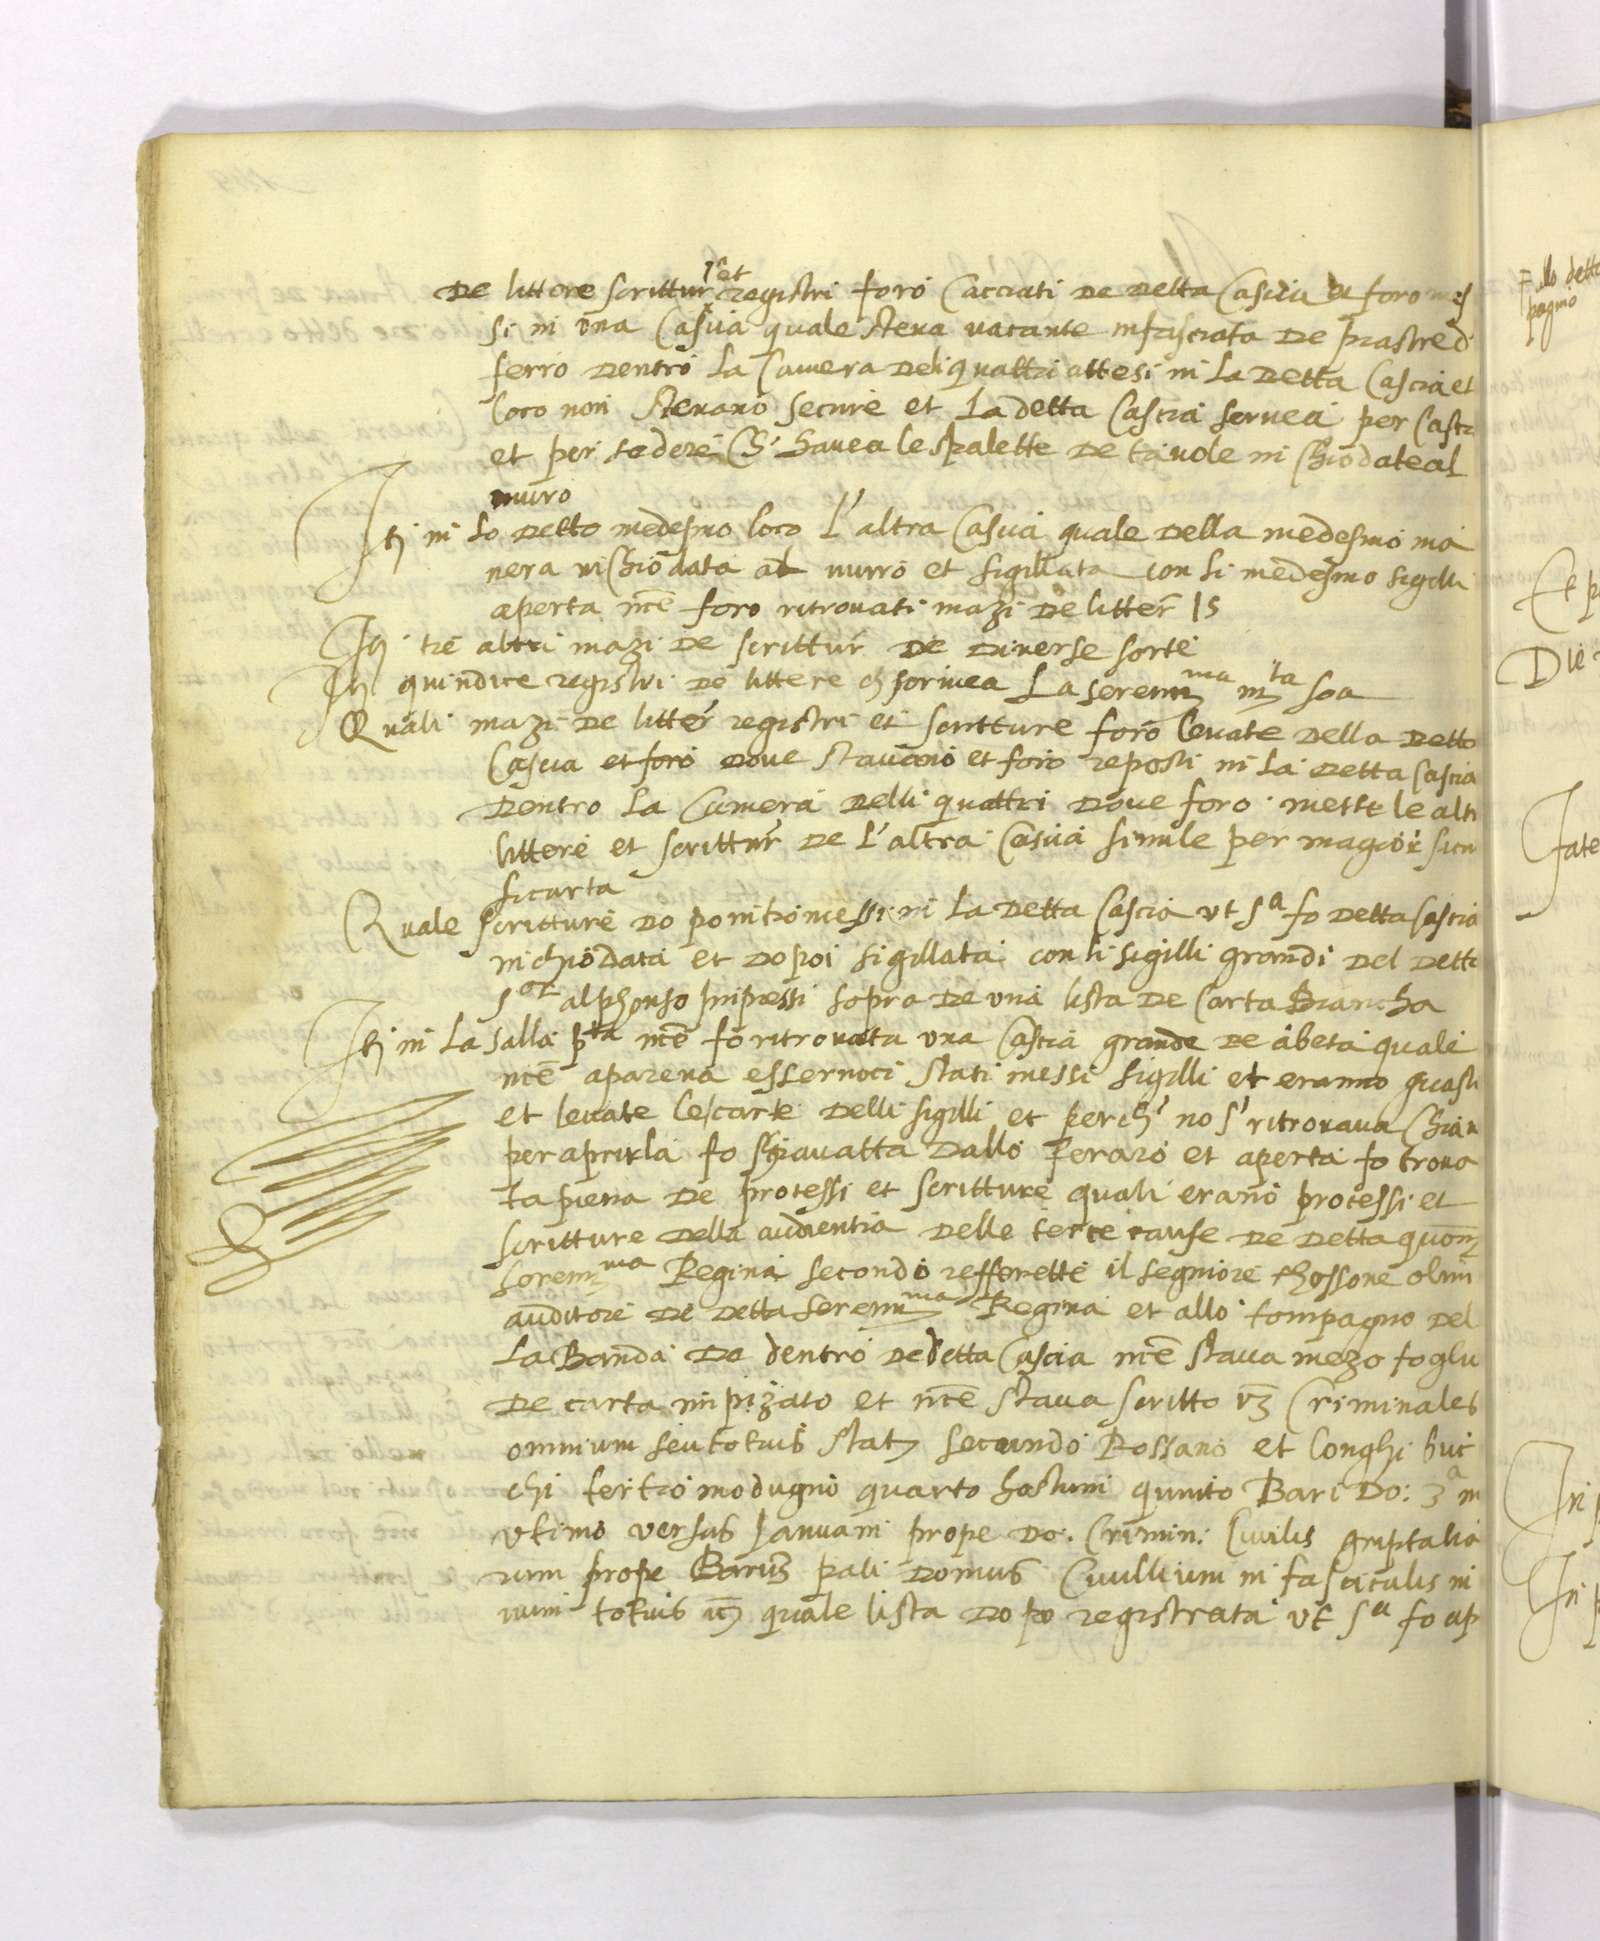 De littere scrittur^e et registri foro cacciati de detta Cascia et foro mes
si in una Cascia quale steva vacante infasciata de piastre di
ferro dentro la Camera deli quattri attesi in la detta Cascia et
loco non stevano secure et la detta Cascia servea per Casci
et per sedere ch' havea le spalette de tavole inchiodate al
muro
Itj in lo detto medesmo loco l'altra Cascia quale della medesmo ma
nera inchiodata al murro et sigillata con li medesmo sigilli
aperta nce foro ritrovati mazi de litter 15
Itj tre altri mazi de scrittur de diverse sorte
Itj quindice registri de littere ch scrivea la seren^ma m^ta soa
Quali mazi de litter registri et scritture foro levate della detto
Cascia et foro dove stavano et foro reposti in la detta Cascia
dentro la Camera delli quattri dove foro messe le altr
littere et scrittur de l'altra Cascia simile per magior sicu
sicurta
Quale scritture do poi introm essi in la detta Cascia ut s^a fo detta Cascia
inchiodata et dopoi sigillata con li sigilli grandi del detto
s^or alphonso impressi sopra de una lista de Carta Biancha
Itj in la salla p^tta nce fo ritrovata una Cascia grande de abeta quale
nce aparena essernoci stati messi sigilli et eranno guasti
et levate le carte delli sigilli et perch' no s' ritrovava Chiav
per aprirla fo schiavatta dallo feraro et aperta fo trova
ta piena de processi et scritture quali erano processi et
scritture della audientia delle terze cause de detta quon
seren^ma Regina secondo refferette il segniore chossone olim
auditore de detta seren^ma Regina et allo compagno del
la Banda de dentro de detta Cascia nce stava mezo foglu
de carta impizato et nce stava scritto vz Criminales
omnium seu totius stat secundo Rossano et Longhi buc
chi tertio modugno quarto hostuni quinto Bari Do: 3^a in
ultimo versus Januam prope do. Crimin: Civilis griptalia
rum prope Barum pali Domus Civillium in fasciculis in
num totius uz quale lista dopo registrata ut s^a fo ap
Fallo detto
pagmo
Et p
Die
Fate
Iti p
Iti p